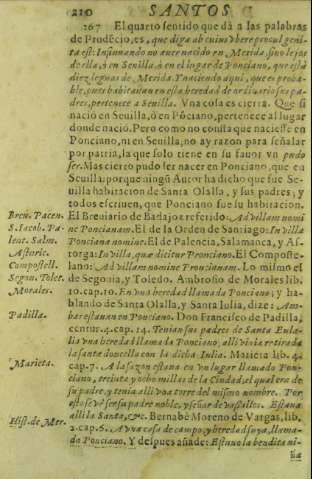 210 SANTOS
267 El quarto sentido que dà a las palabras
de Prudẽcio, es, que diga ab cuius vbere procul genita est: Insinuando no auer nacido en Merida, sino lejos
de ella, ò en Seuilla ò en el lugar de Ponciano, que està
diez leguas de Merida. Y naciendo aqui, que es probable, pues habitauan en esta heredad de ordinario sus padres, pertenece a Seuilla. Vna cosa es cierta. Que si
nació en Seuilla, ò en Põciano, pertenece al lugar
donde nació. Pero como no consta que naciesse en
Ponciano, ni en Seuilla, no ay razon para señalar
por patria, la que solo tiene en su fauor vn pudo
ser. Mas cierto pudo ser nacer en Ponciano, que en
Seuilla: porque ningũ Autor ha dicho que fue Seuilla habitacion de Santa Olalla, y sus padres; y
todos escriuen, que Ponciano fue su habitacion.
El Breuiario de Badajoz referido: Ad villam nomine Poncianam. El de la Orden de Santiago: In villa
Ponciana nomine. El de Palencia, Salamanca, y Astorga: In villa, quæ dicitur Pronciano. El Compostelano: Ad villam nomine Proncianam. Lo mismo el
de Segouia, y Toledo. Ambrosio de Morales lib.
10. cap. 10. En vna heredad llamada Ponciano; y hablando de Santa Olalla, y Santa Iulia, dize: Ambas estauan en Ponciano. Don Francisco de Padilla,
centur. 4. cap. 14. Tenian sus padres de Santa Eulalia vna heredad llamada Ponciano, alli viuia retirada
la santa donzella con la dicha Iulia. Marieta lib. 4.
cap. 7. A la sazon estaua en vn lugar llamado Ponciano, treinta y ocho millas de la Ciudad, el qual era de
su padre, y tenia alli vna torre del mismo nombre. Por
esto se vè ser su padre noble, y señor de vassallos. Estaua
alli la Santa, &c. Bernabè Moreno de Vargas, lib.
2. cap. 5. A vna casa de campo, y heredad suya, llamada Ponciano. Y despues añade: Estuuo la bendita ni-
ña
Breu. Pacen.
S. Iacob. Palent. Salm.
Astoric.
Compostell.
Segou. Tolet.
Morales.
Padilla.
Marieta.
Hist. de Mer.